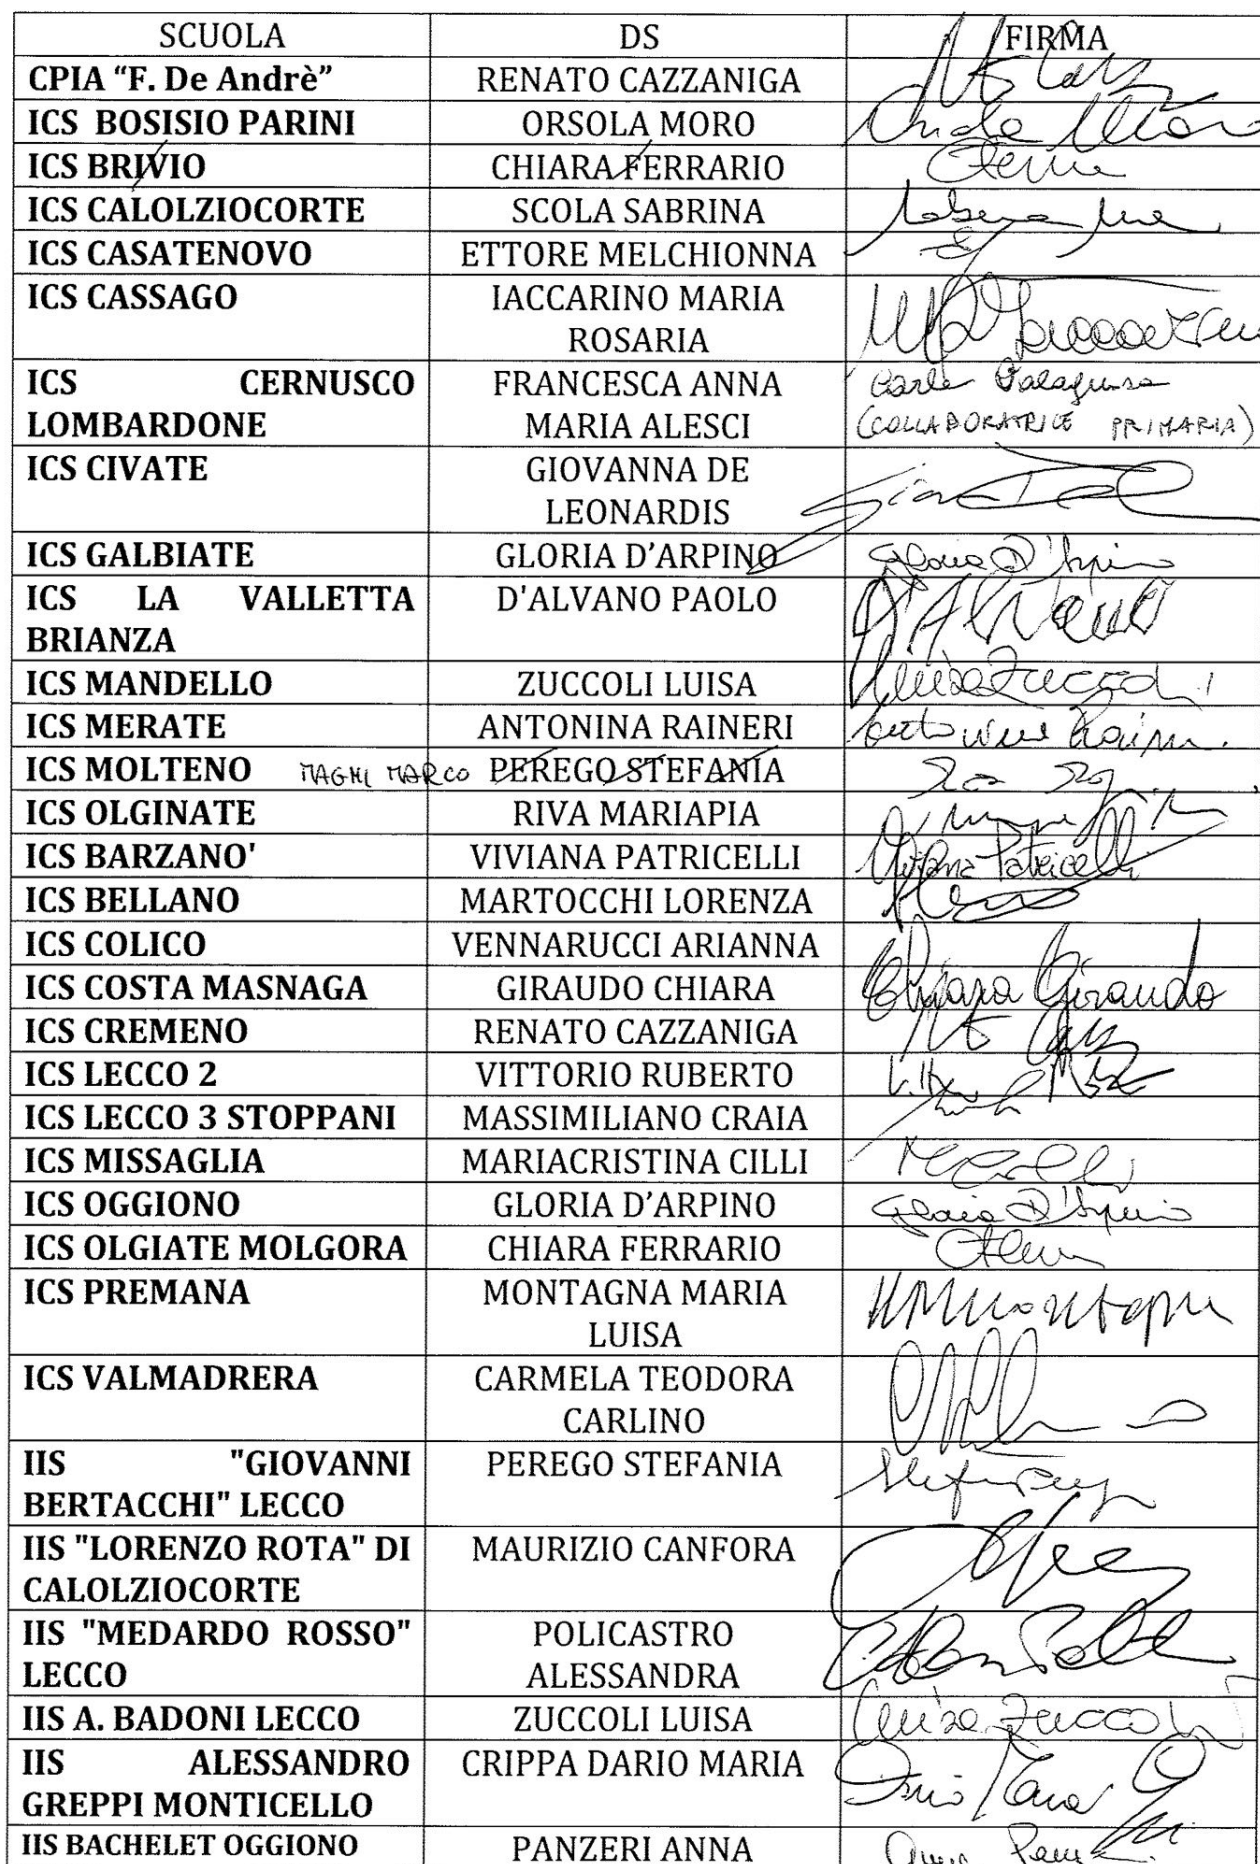 SCUOLA DS FIRMA
CPIA “F. De Andrè” RENATO CAZZANIGA
ICS BOSISIO PARINI ORSOLA MORO
ICS BRIVIO CHIARA FERRARIO
ICS CALOLZIOCORTE SCOLA SABRINA
ICS CASATENOVO ETTORE MELCHIONNA
ICS CASSAGO IACCARINO MARIA
ROSARIA
ICS CERNUSCO FRANCESCA ANNA
LOMBARDONE MARIA ALESCI (COLLABORATRICE PRIMARIA)
ICS CIVATE GIOVANNA DE
LEONARDIS
ICS GALBIATE GLORIA D’ARPINO Gloria D'Arpino
ICS LA VALLETTA D'ALVANO PAOLO D'Alvano
BRIANZA
ICS MANDELLO ZUCCOLI LUISA Luisa Zuccoli
ICS MERATE ANTONINA RAINERI
ICS MOLTENO MAGHI MARCO PEREGO STEFANIA
ICS OLGINATE RIVA MARIAPIA
ICS BARZANO' VIVIANA PATRICELLI Viviana Patricelli
ICS BELLANO MARTOCCHI LORENZA
ICS COLICO VENNARUCCI ARIANNA
ICS COSTA MASNAGA GIRAUDO CHIARA Chiara Giraudo
ICS CREMENO RENATO CAZZANIGA
ICS LECCO 2 VITTORIO RUBERTO
ICS LECCO 3 STOPPANI MASSIMILIANO CRAIA
ICS MISSAGLIA MARIACRISTINA CILLI
ICS OGGIONO GLORIA D’ARPINO Gloria D'Arpino
ICS OLGIATE MOLGORA CHIARA FERRARIO
ICS PREMANA MONTAGNA MARIA
LUISA
ICS VALMADRERA CARMELA TEODORA
CARLINO
IIS "GIOVANNI PEREGO STEFANIA
BERTACCHI" LECCO
IIS "LORENZO ROTA" DI MAURIZIO CANFORA
CALOLZIOCORTE
IIS "MEDARDO ROSSO" POLICASTRO
LECCO ALESSANDRA
IIS A. BADONI LECCO ZUCCOLI LUISA Luisa Zuccoli
IIS ALESSANDRO CRIPPA DARIO MARIA
GREPPI MONTICELLO
IIS BACHELET OGGIONO PANZERI ANNA